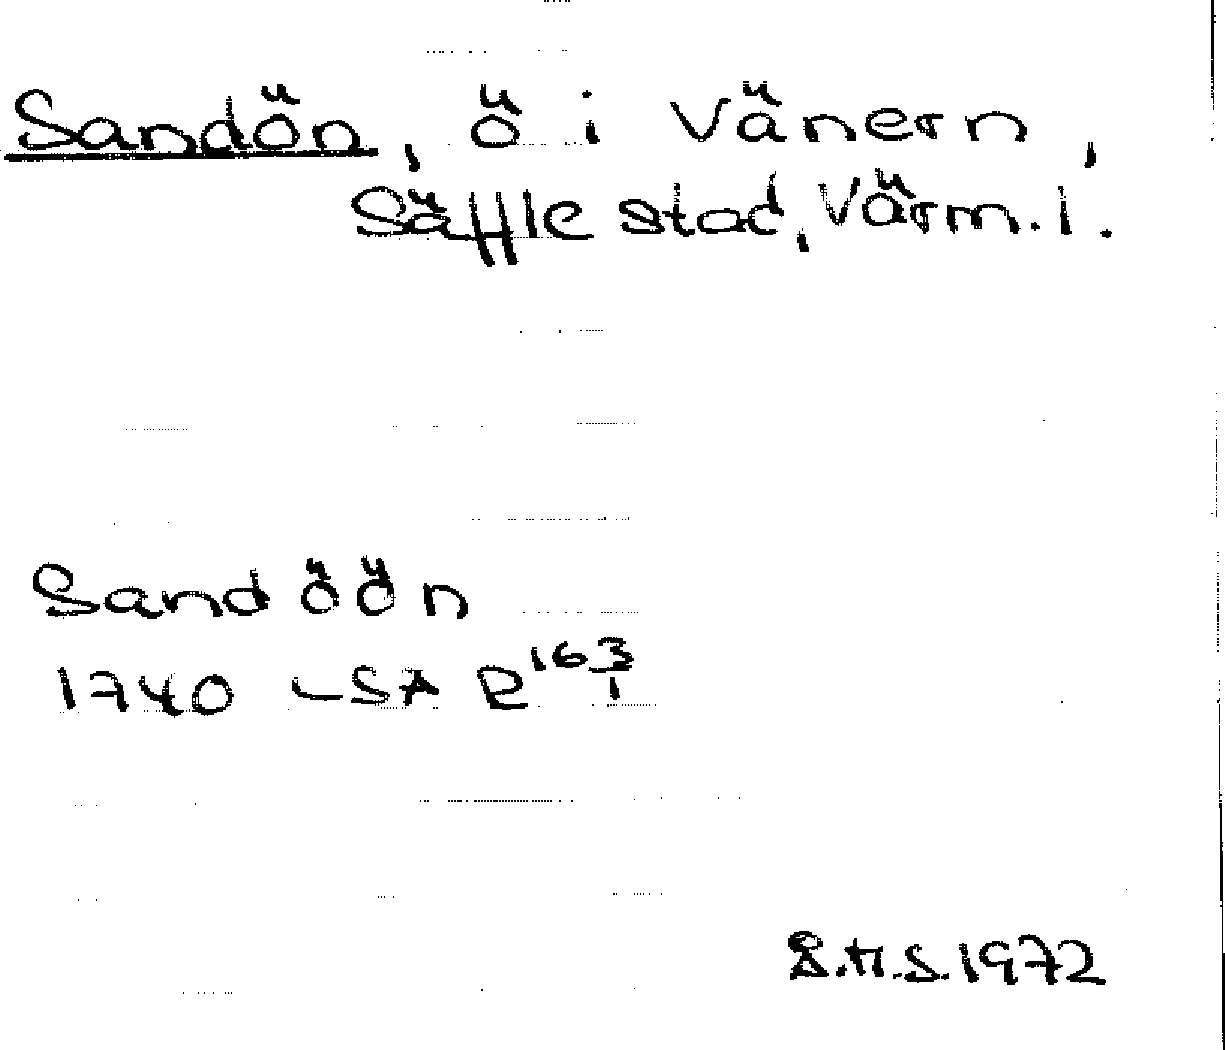 Sandön, ö i Vänern,
Säffle stad, Värm. l.
Sandöön
1740 LSA R 163/1
S.H.S. 1972